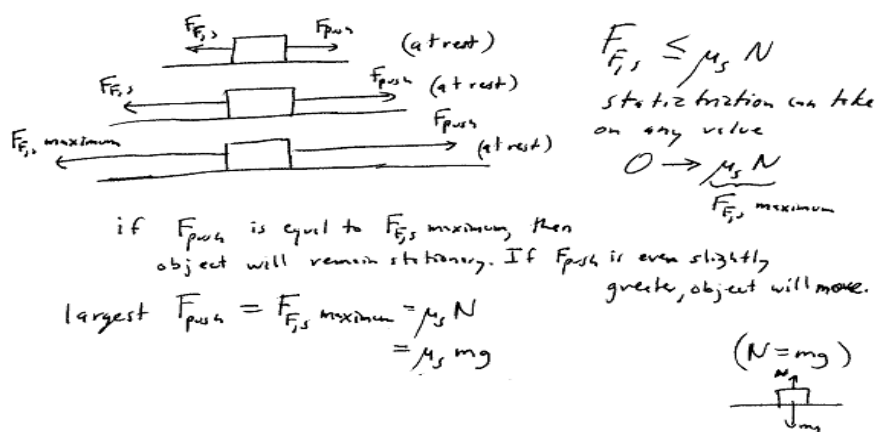 F_F,s F_push (at rest)
F_F,s F_push (at rest)
F_F,s maximum F_push (at rest)
F_F,s ≤ μ_s N
static friction can take
on any value
0 → μ_s N
F_F,s maximum
if F_push is equal to F_F,s maximum, then
object will remain stationary. If F_push is even slightly
greater, object will move.
largest F_push = F_F,s maximum = μ_s N
= μ_s mg
(N = mg)
N
mg